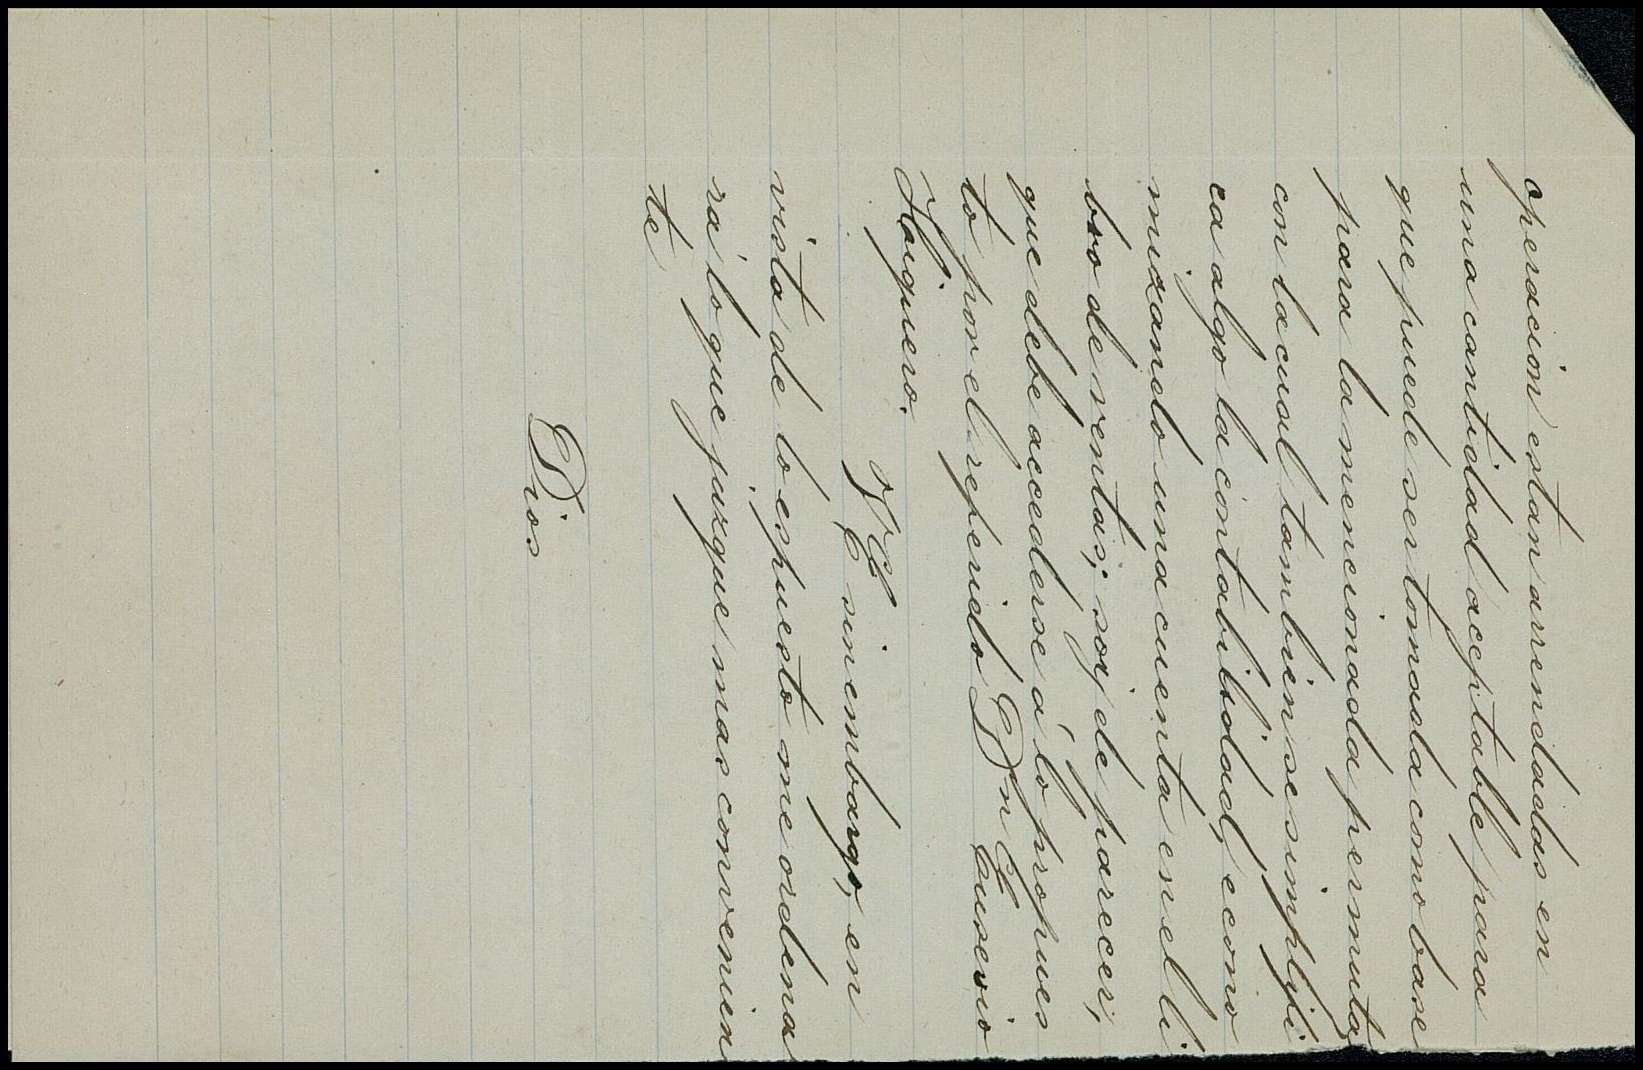 operación estan arrendadas en
una cantidad aceptable para
que puede ser tomada como base
para la mencionada permuta
con la cual tambien se simplifi
ca algo la contabilidad, econo
mizando una cuenta en el li
bro de rentas; soy de parecer,
que debe accederse á lo propues
to por el repetido Dn Eusevio
Holquero.
V.E. sinembargo, en
vista de lo espuesto me ordena
rá lo que juzgue mas convenien
te
Dios